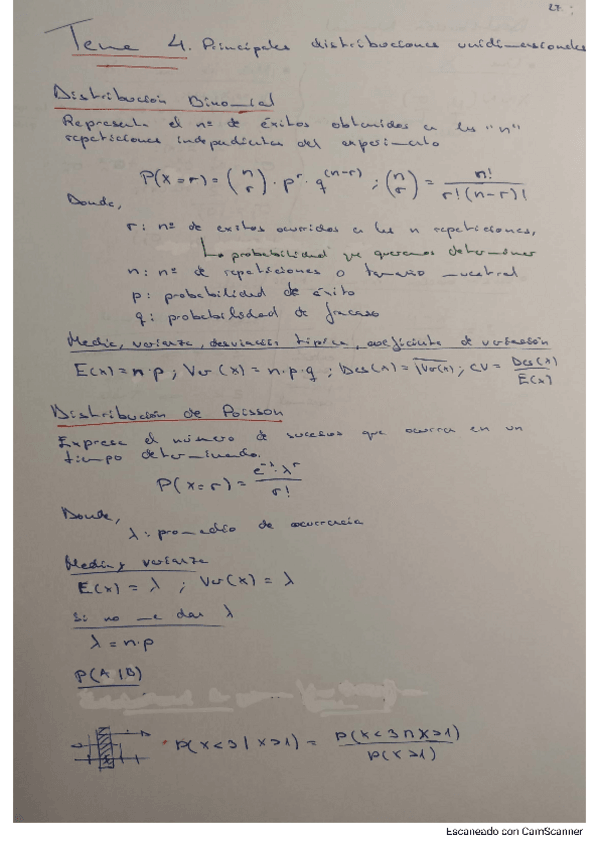 27
Tema 4. Principales distribuciones unidimensionales
Distribución Binomial
Representa el nº de éxitos obtenidos en las "n"
repeticiones independientes del experimento
P(X=r) = (n r) · p^r · q^(n-r) ; (n r) = n! / r!(n-r)!
Donde,
r: nº de exitos ocurridos en las n repeticiones,
↳ probabilidad que queremos determinar
n: nº de repeticiones o tamaño muestral
p: probabilidad de éxito
q: probabilidad de fracaso
Media, varianza, desviación típica, coeficiente de variación
E(x) = n·p ; Var(x) = n·p·q ; Des(x) = √Var(x) ; CV = Des(x) / E(x)
Distribución de Poisson
Expresa el número de sucesos que ocurren en un
tiempo determinado.
P(x=r) = e^-λ · λ^r / r!
Donde,
λ: promedio de ocurrencia
Media y varianza
E(x) = λ ; Var(x) = λ
Si no me dan λ
λ = n·p
P(A|B)
P(X<3|X>1) = P(X<3∩X>1) / P(X>1)
Escaneado con CamScanner